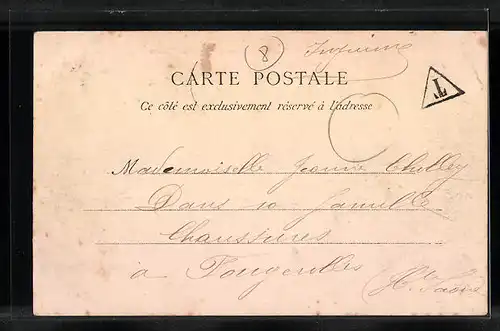 8
CARTE POSTALE
T
Ce côté est exclusivement réservé à l'adresse
Mademoiselle Jeanne
Dans sa famille
Chaussures
à Fougerolles
(Hte Saône